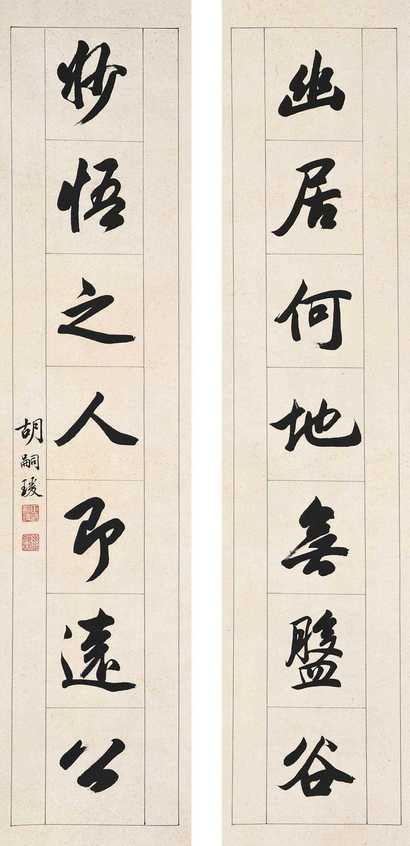 幽居何地無盤谷
妙悟之人即遠公
胡嗣瑗